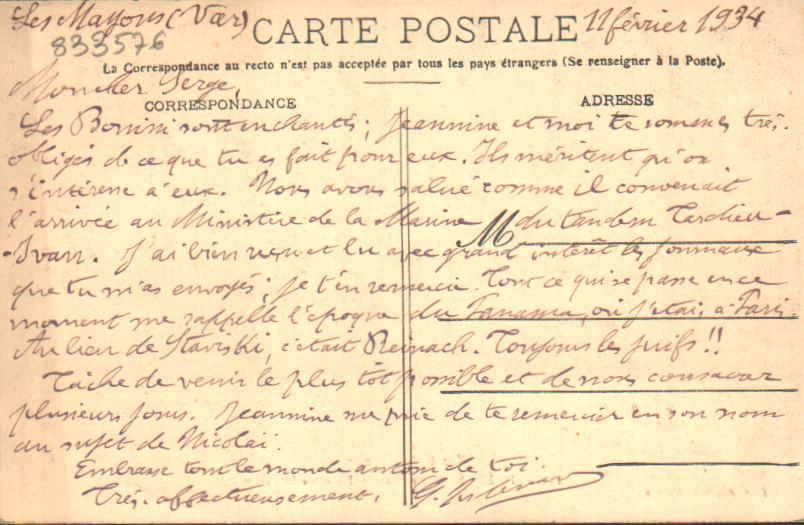 Les Mayons (Var) CARTE POSTALE 11 février 1934
833576
La Correspondance au recto n'est pas acceptée par tous les pays étrangers (Se renseigner à la Poste).
Mon cher Serge,
CORRESPONDANCE ADRESSE
Les Bonini sont enchantés ; Jeannine et moi te sommes très
obligés de ce que tu as fait pour eux. Ils méritent qu'on
s'intéresse à eux. Nous avons salué comme il convenait
l'arrivée au Ministère de la Marine du tandem Tardieu-
M
-Ivan. J'ai bien reçu et lu avec grand intérêt les journaux
que tu m'as envoyés ; je t'en remercie. Tout ce qui se passe en ce
moment me rappelle l'époque du Panama, où j'étais à Paris.
Au lieu de Staviski, c'était Reinach. Toujours les juifs !!
Tâche de venir le plus tôt possible et de nous consacrer
plusieurs jours. Jeannine me prie de te remercier en son nom
au sujet de Nicolaï.
Embrasse tout le monde autour de toi.
Très affectueusement,